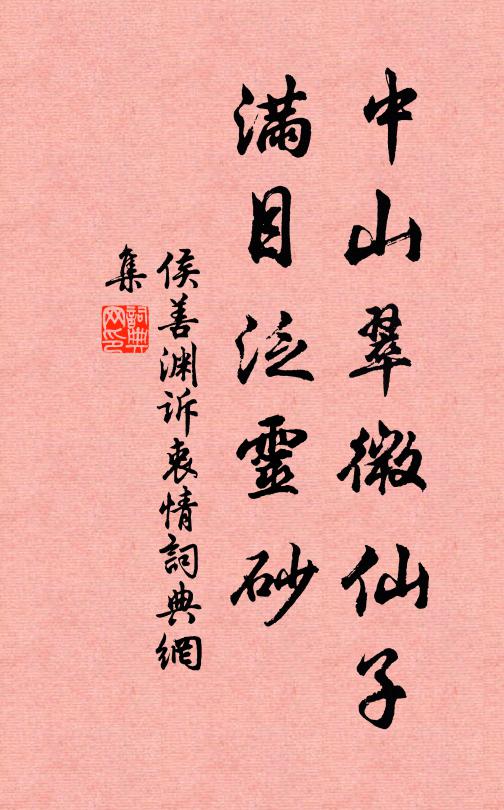 中山翠微仙子
满目泛靈砂
侯善渊诉衷情詞典網
集
詞典
网印